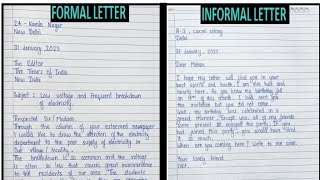 FORMAL LETTER
24 - Kamla Nagar
New Delhi
31 January, 2023
The Editor
The Times of India
New Delhi
Subject : Low voltage and frequent breakdown
of electricity.
Respected Sir / Madam,
Through the column of your esteemed newspaper
I would like to draw the attention of the electricity
department to the poor supply of electricity in
our village / locality.
The breakdown is so common and the voltage
is often so low that causes great inconvenience
to the residents of our area. The students
INFORMAL LETTER
A-3, Laxmi colony
Delhi
31 January, 2023
Dear Mohan
I hope my letter will find you in your
best spirits and health. I am also well and
hearty here. As you know my birthday fell
on of this month. I had sent you
the invitation but you did not come.
Well, my birthday was celebrated in a
grand manner. Except you, all of my friends
were present to enjoyed the party. If you
had joined the party, you would have liked
it so much.
When are you coming here? Write to me soon.
Your loving friend